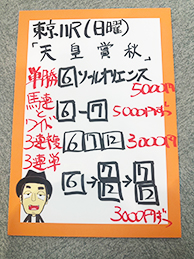 東京11R(日曜)
「天皇賞秋」
単勝 6 ソールオリエンス
5000円
馬連とワイド 6-7 5000円ずつ
3連複 6 7 12 3000円
3連単 6→7 12→7 12
3000円ずつ